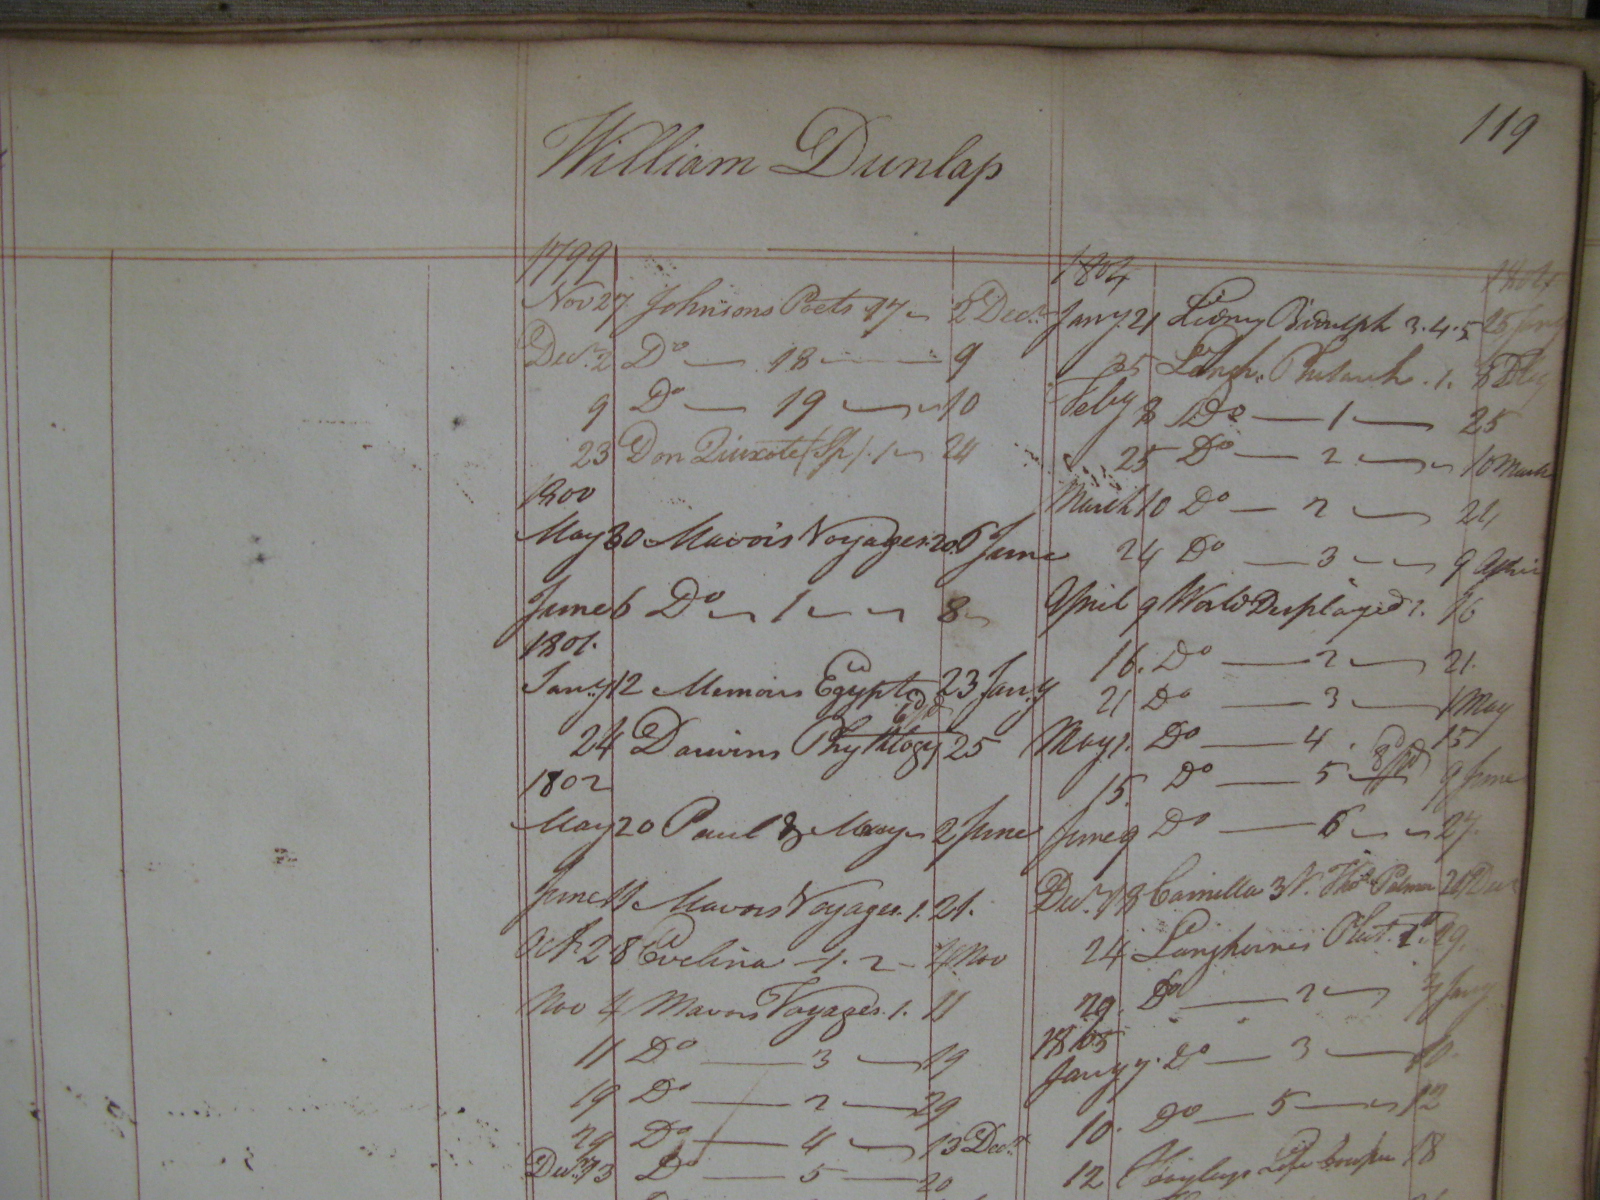 119
William Dunlap
1799
Nov 27 Johnsons Poets 17 2 Decr
Decr 2 Do 18 9
9 Do 19 10
23 Don Quixote (Sp) 1 24
1800
May 30 Mavors Voyages 20 6 June
June 6 Do 1 8
1801
Jany 12 Memoirs Egypt 23 Jany
24 Darwins 25
1802
May 20 Paul & Mary 2 June
June 11 Mavors Voyages 1. 21.
Oct 28 Evelina 1. 2 4 Nov
Nov 4 Mavors Voyages. 1. 11
11 Do 3 19
19 Do 2 29
29 Do 4 13 Decr
Decr 13 Do 5 20
1804 1804
Jany 21 Sidney Bidulph 3. 4. 5 25 Jany
25 Langh. Plutarch. 1. 8 Feby
Feby 8 Do 1 25
25 Do 2 10 March
March 10 Do 2 24
24 Do 3 9 April
April 9 World Displayed 1. 16
16. Do 2 21.
21 Do 3 1 May
May 1. Do 4 15
15. Do 5 9 June
June 9 Do 6 27.
Decr 18 Camilla 3 V. Thos Palmer Dec
24 Langhornes Plut. 1. 29.
29. Do 2 7 Jany
1805
Jany 7. Do 3 10.
10. Do 5 12
12 Hayleys Life Cowper 18